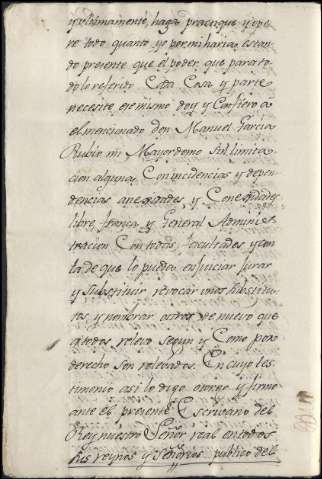 y ultimamente, haga practique y ope
re todo quanto yo por mi haria, estan
do presente, que el poder, que para to
do lo referido Cada Cosa y parte
necesite ese mismo doy y Confiero a
el mencionado don Manuel Garcia
Rubio mi Mayordomo sin limita
cion alguna, Con incidencias y depen
dencias anexidades y Conexidades
libre, franca, y General Adminis
tracion Con todas facultades y con
la de que lo pueda enjuiciar Jurar
y substituir revocar unos substitu
tos, y nombrar otros de nuevo que
a todos relevo segun y Como por
derecho son relevados. En cuyo tes
timonio asi lo digo otorgo y firmo
ante el presente Escribano del
Rey nuestro Señor real en todos
sus reynos y Señorios publico del